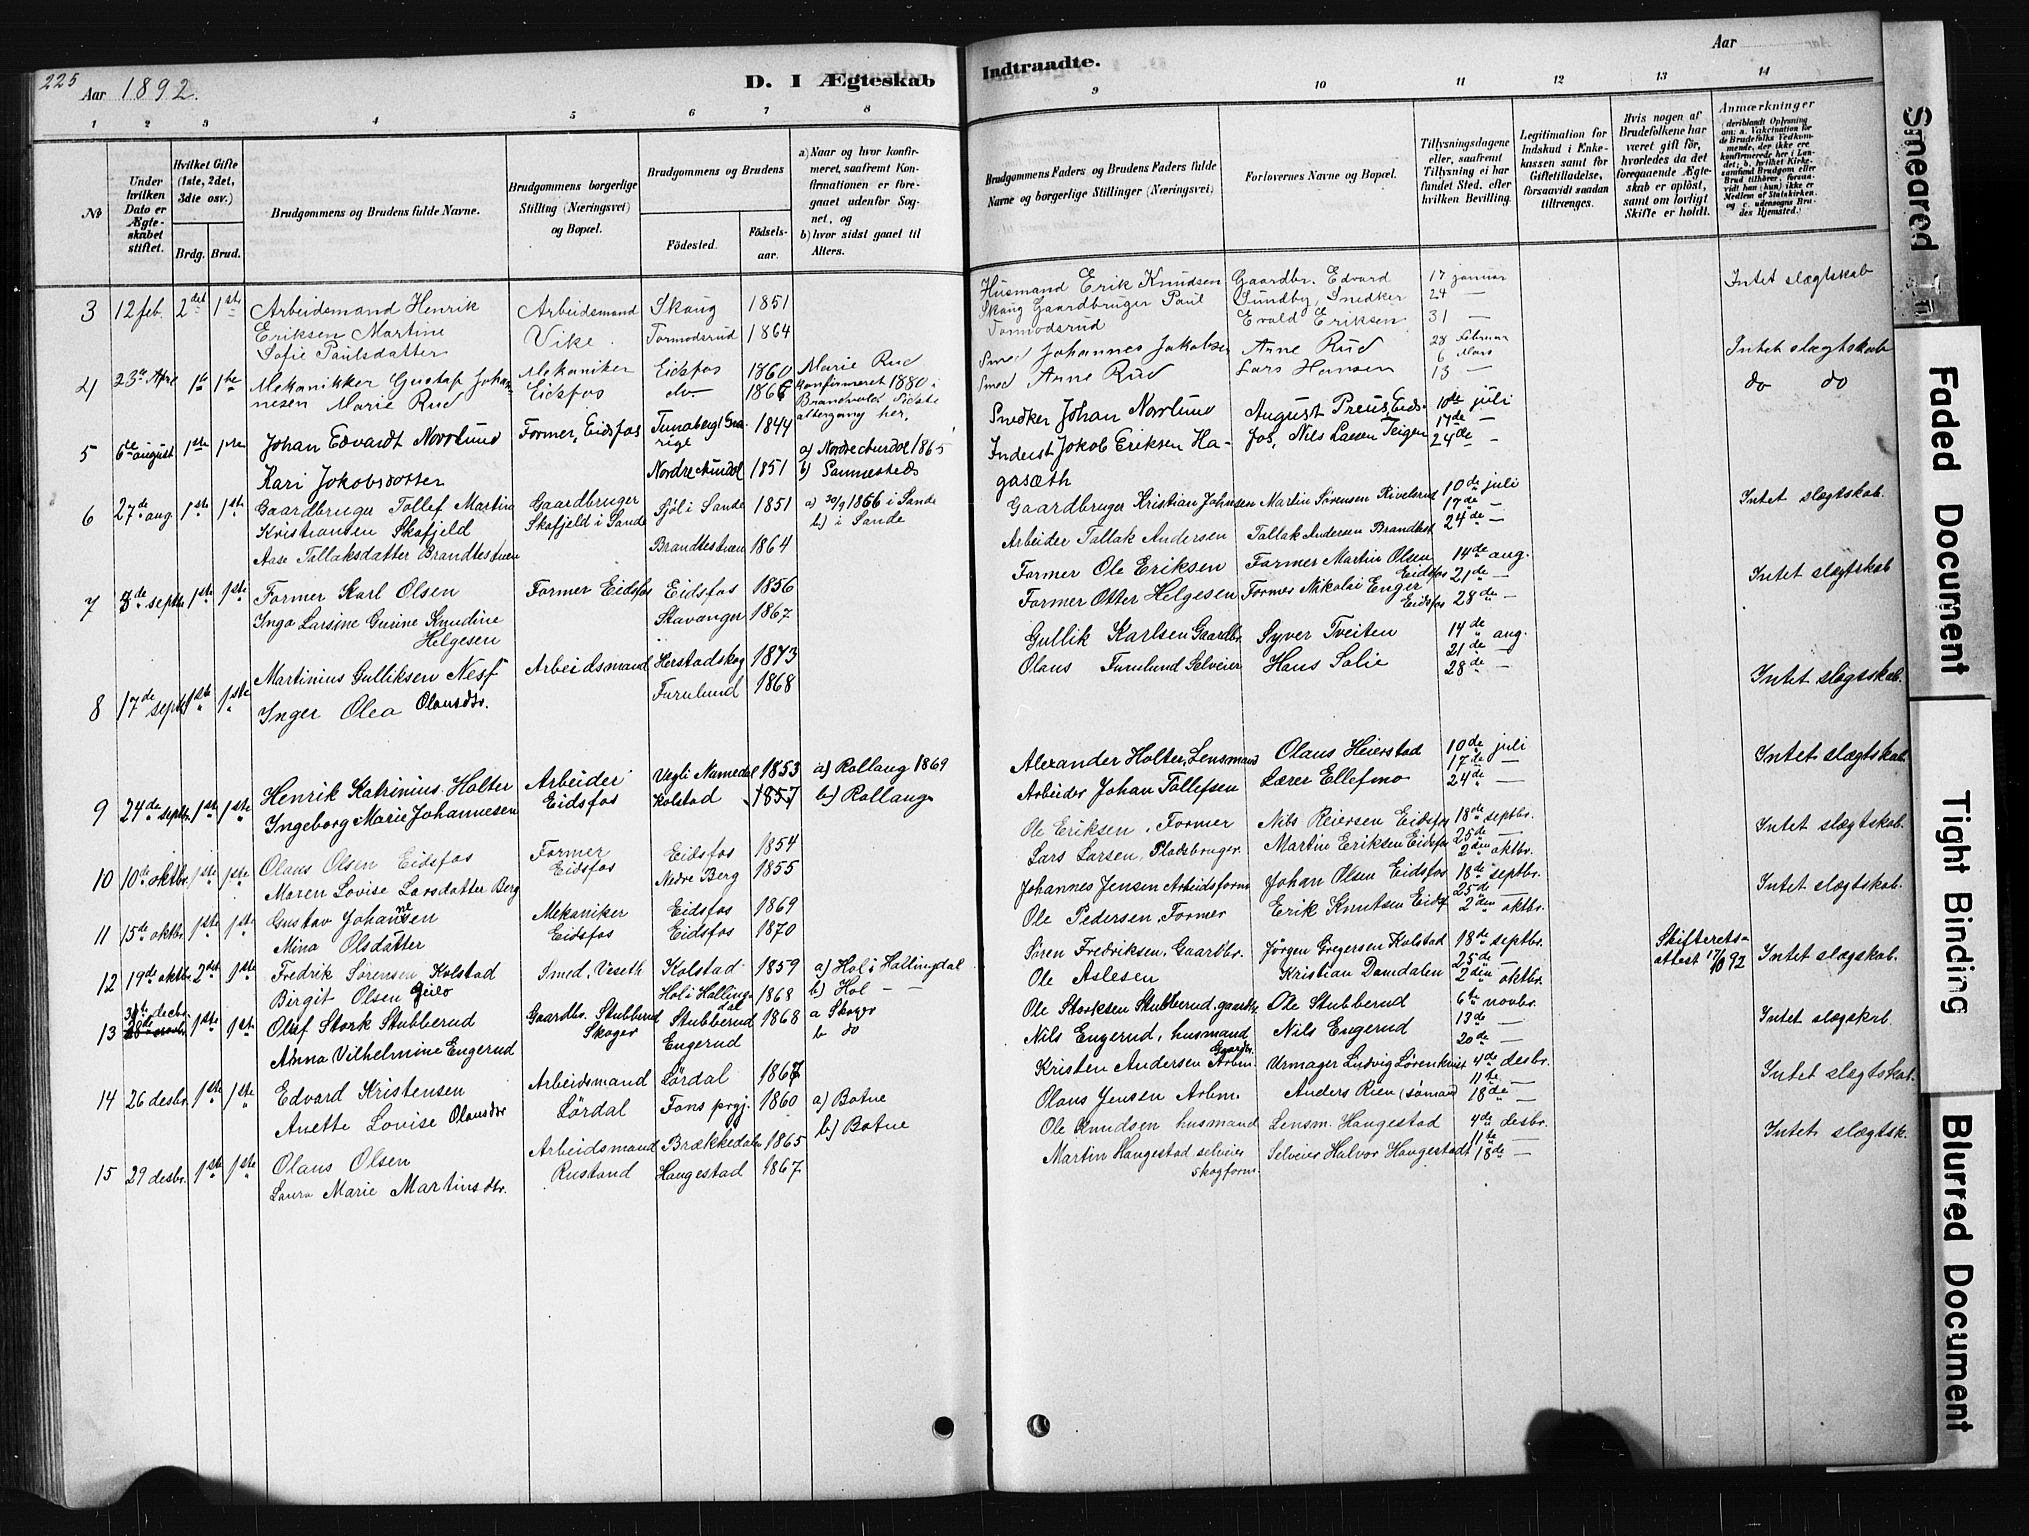 225
Aar 1892.
D. I Ægteskab
Indtraadte.
Aar
1 2 3 4 5 6 7 8 9 10 11 12 13 14
No
Under hvilken Dato er Ægteskabet stiftet.
Hvilket Gifte (1ste, 2det, 3die osv.)
Brdg. Brud.
Brudgommens og Brudens fulde Navne.
Brudgommens borgerlige Stilling (Næringsvei) og Bopæl.
Brudgommens og Brudens
Födested.
Födsels-aar.
a) Naar og hvor konfirmeret, saafremt Konfirmationen er foregaaet udenfor Sognet, og b) hvor sidst gaaet til Alters.
Brudgommens Faders og Brudens Faders fulde Navne og borgerlige Stillinger (Næringsvei)
Forlovernes Navne og Bopæl.
Tillysningsdagene eller, saafremt Tillysning ei har fundet Sted, efter hvilken Bevilling.
Legitimation for Indskud i Enkekassen samt for Giftetilladelse, forsaavidt saadan tiltrænges.
Hvis nogen af Brudefolkene har været gift för, hvorledes da det foregaaende Ægteskab er oplöst, samt om lovligt Skifte er holdt.
Anmærkninger (deriblandt Oplysning om: a. Vakcination for de Brudefolks Vedkommende, der ikke ere konfirmerede her i Landet; b. hvilket Kirkesamfund Brudgom eller Brud tilhörer, forsavidt han (hun) ikke er Medlem af Statskirken, og c. udensogns Brudes Hjemsted.)
3 12 feb. 2det 1ste Arbeidsmand Henrik Arbeidsmand Skaug 1851 Husmand Erik Knudsen Gaardbr. Edvard 17 januar Intet slægtskab
Eriksen Martine Vike. Tormodsrud 1864 Skaug Gaardbruger Paul Sundby, Snedker 24 —
Sofie Paulsdatter Tormodsrud Evald Eriksen 31 —
4 23de Apr 1ste 1ste Mekanikker Gustaf Johan- Mekaniker Eidsfos 1860 Marie Rud Smed Johannes Jakobsen Arne Rud 28 Februar Intet slægtskab
nesen Marie Rud Eidsfos do. 1866 konfirmeret 1880 i Smed Arne Rud Lars Hansen 6 Mars do do
Brandvold Sidste 13 —
altergang her.
5 6te august 1ste 1ste Johan Edvardt Norrlund Former, Eidsfos Tunaberg i Sve- 1844 Snedker Johan Norrlund August Preus, Eids- 10de juli
rige fos, Nils Larsen Teigen 17de —
Kari Jokobsdatter Nordre Aurdal 1851 a) Nordre Aurdal 1865 Inderst Jokob Eriksen Ha- 24de —
b) Sammesteds gasæth
6 27de aug 1ste 1ste Gaardbruger Tollef Martin Gaardbruger Fjöl i Sande 1851 a) 30/9 1866 i Sande Gaardbruger Kristian Johnsen Martin Sørensen 10de juli Intet slægtskab.
Kristiansen Skafjeld Skafjeld i Sande b) i Sande 17de —
Aase Tallaksdatter Brandtestuen Brandtestuen 1864 Arbeider Tallak Andersen Tallak Andersen Brandtest 24de —
7 8de septbr 1ste 1ste Former Karl Olsen Former Eidsfos Eidsfos 1856 Former Ole Eriksen Former Martin Olsen Eidsfos 14de aug. Intet slægtskab
21de —
Inga Larsine Gurine Knudine Stavanger 1867 Former Otter Helgesen Former Nikolai Enger Eidsfos 28de —
Helgesen
8 17de septbr 1ste 1ste Martinius Gulliksen Nesf Arbeidsmand Herstadskog 1873 Gullik Karlsen Gaardbr. Syver Tveiten 14de aug. Intet slægtskab.
21de —
Inger Olea Olausdtr. Furulund 1868 Olaus Furulund Selveier Hans Solie 28de —
9 24de septbr. 1ste 1ste Henrik Katrinius Holter Arbeider Vegli Numedal 1853 a) Rollaug 1869 Alexander Holter, Lensmand Olaus Heierstad 10de juli Intet slægtskab.
17de —
Ingeborg Marie Johannesen Eidsfos Kolstad 1857 b) Rollaug Arbeider Johan Tollefsen Lærer Ellefmo 24de —
10 10de oktbr. 1ste 1ste Olaus Olsen Eidsfos Former Eidsfos 1854 Ole Eriksen, Former Nils Reiersen Eidsfos 18de septbr. Intet slægtskab.
25de —
Maren Lovise Larsdatter Berg Eidsfos Nedre Berg 1855 Lars Larsen, Pladsbruger. Martin Eriksen Eidsfos 2den oktbr.
11 15de oktbr. 1ste 1ste Gustav Johannesen Mekaniker Eidsfos 1869 Johannes Jensen Arbeidsform Johan Olsen Eidsfos 18de septbr. Intet slægtskab.
25de —
Mina Olsdatter Eidsfos Eidsfos 1870 Ole Pedersen, Former Erik Knutsen Eidsf 2den oktbr.
12 19de oktbr. 2det 1ste Fredrik Sørensen Kolstad Smed, Veseth Kolstad 1859 a) Hol i Hallingdal Søren Fredriksen, Gaardbr. Jørgen Gregersen Kolstad 18de septbr. Skifterets- attest 17/10 92 Intet slægskab.
25de —
Birgit Olsen Geilo Hol i Halling- dal 1868 b) Hol — — Ole Aslesen Kristian Damdalen 2den oktbr.
13 3die decbr. 1ste 1ste Oluf Stork Stubberud Gaardbr. Stubberud Stubberud 1868 a Skoger Ole Storksen Stubberud, gaardbr. Ole Stubberud 6te novbr. Intet slægskab
Skoger b do 13de —
Anna Vilhelmine Engerud Engerud Nils Engerud, husmand Nils Engerud 20de —
14 26 desbr. 1ste 1ste Edvard Kristensen Arbeidsmand Lördal 1867 Kristen Andersen Gaardbr. Arbm. Urmager Ludvig 4de desbr. Intet slægtskab.
11te —
Anette Lovise Olausdtr Lördal Fons prgj. 1860 a) Botne Olaus Jensen Arbm. Anders Rien (sömand 18de —
b) Botne
15 29 desbr. 1ste 1ste Olaus Olsen Arbeidsmand Brækkedalen 1865 Ole Knudsen husmand Lensm. Haugestad 4de desbr. Intet slægtsk.
11te —
Laura Marie Martinsdtr. Rustand Haugestad 1867 Martin Haugestad selveier Selveier Halvor Haugestad 18de —
skogform.
Smeared
Faded Document
Tight Binding
Blurred Document